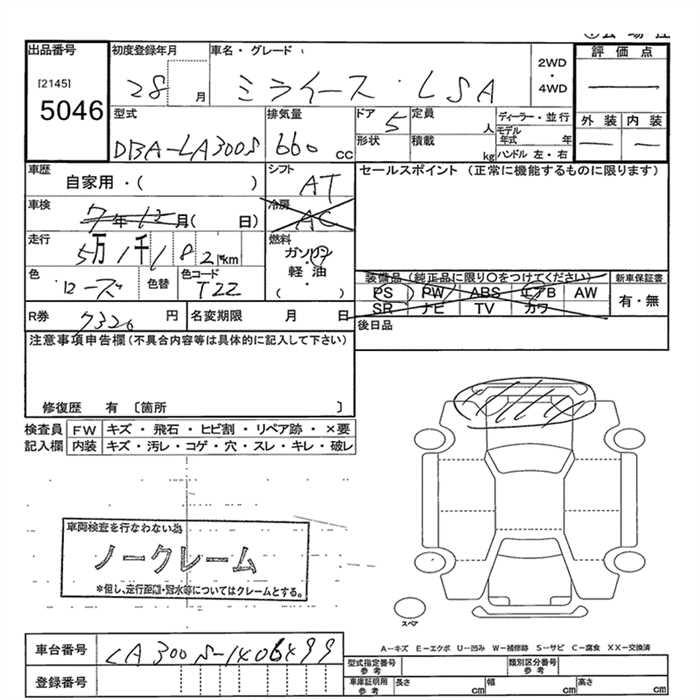 出品番号
[2145]
5046
初度登録年月
28 月
車名・グレード
ミライース・LSA
2WD
・
4WD
評価点
外装 内装
型式
DBA-LA300S
排気量
660 cc
ドア
5
定員
人
形状
積載
kg
ディーラー・並行
モデル年式 年
ハンドル 左・右
車歴
自家用・( )
シフト
AT
セールスポイント (正常に機能するものに限ります)
車検
7年12月( 日)
冷房
AC
走行
5万1千182km
燃料
ガソリン
軽油・
( )
色
ローズ
色替
色コード
T22
装備品(純正品に限り○をつけてください)
PS PW ABS エアB AW
SR ナビ TV カワ
新車保証書
有・無
R券
7320 円
名変期限 月 日
後日品
注意事項申告欄(不具合内容等は具体的に記入して下さい)
修復歴 有 〔箇所 〕
検査員記入欄
FW キズ・飛石・ヒビ割・リペア跡・×要
内装 キズ・汚レ・コゲ・穴・スレ・キレ・破レ
車両検査を行なわない為
ノークレーム
*但し、走行距離・冠水等についてはクレームとする。
スペア
A-キズ E-エクボ U-凹み W-補修跡 S-サビ C-腐食 XX-交換済
車台番号
LA300S-1406499
登録番号
型式指定番号
参考
類別区分番号
参考
車庫証明用
参考
長さ cm 幅 cm 高さ cm